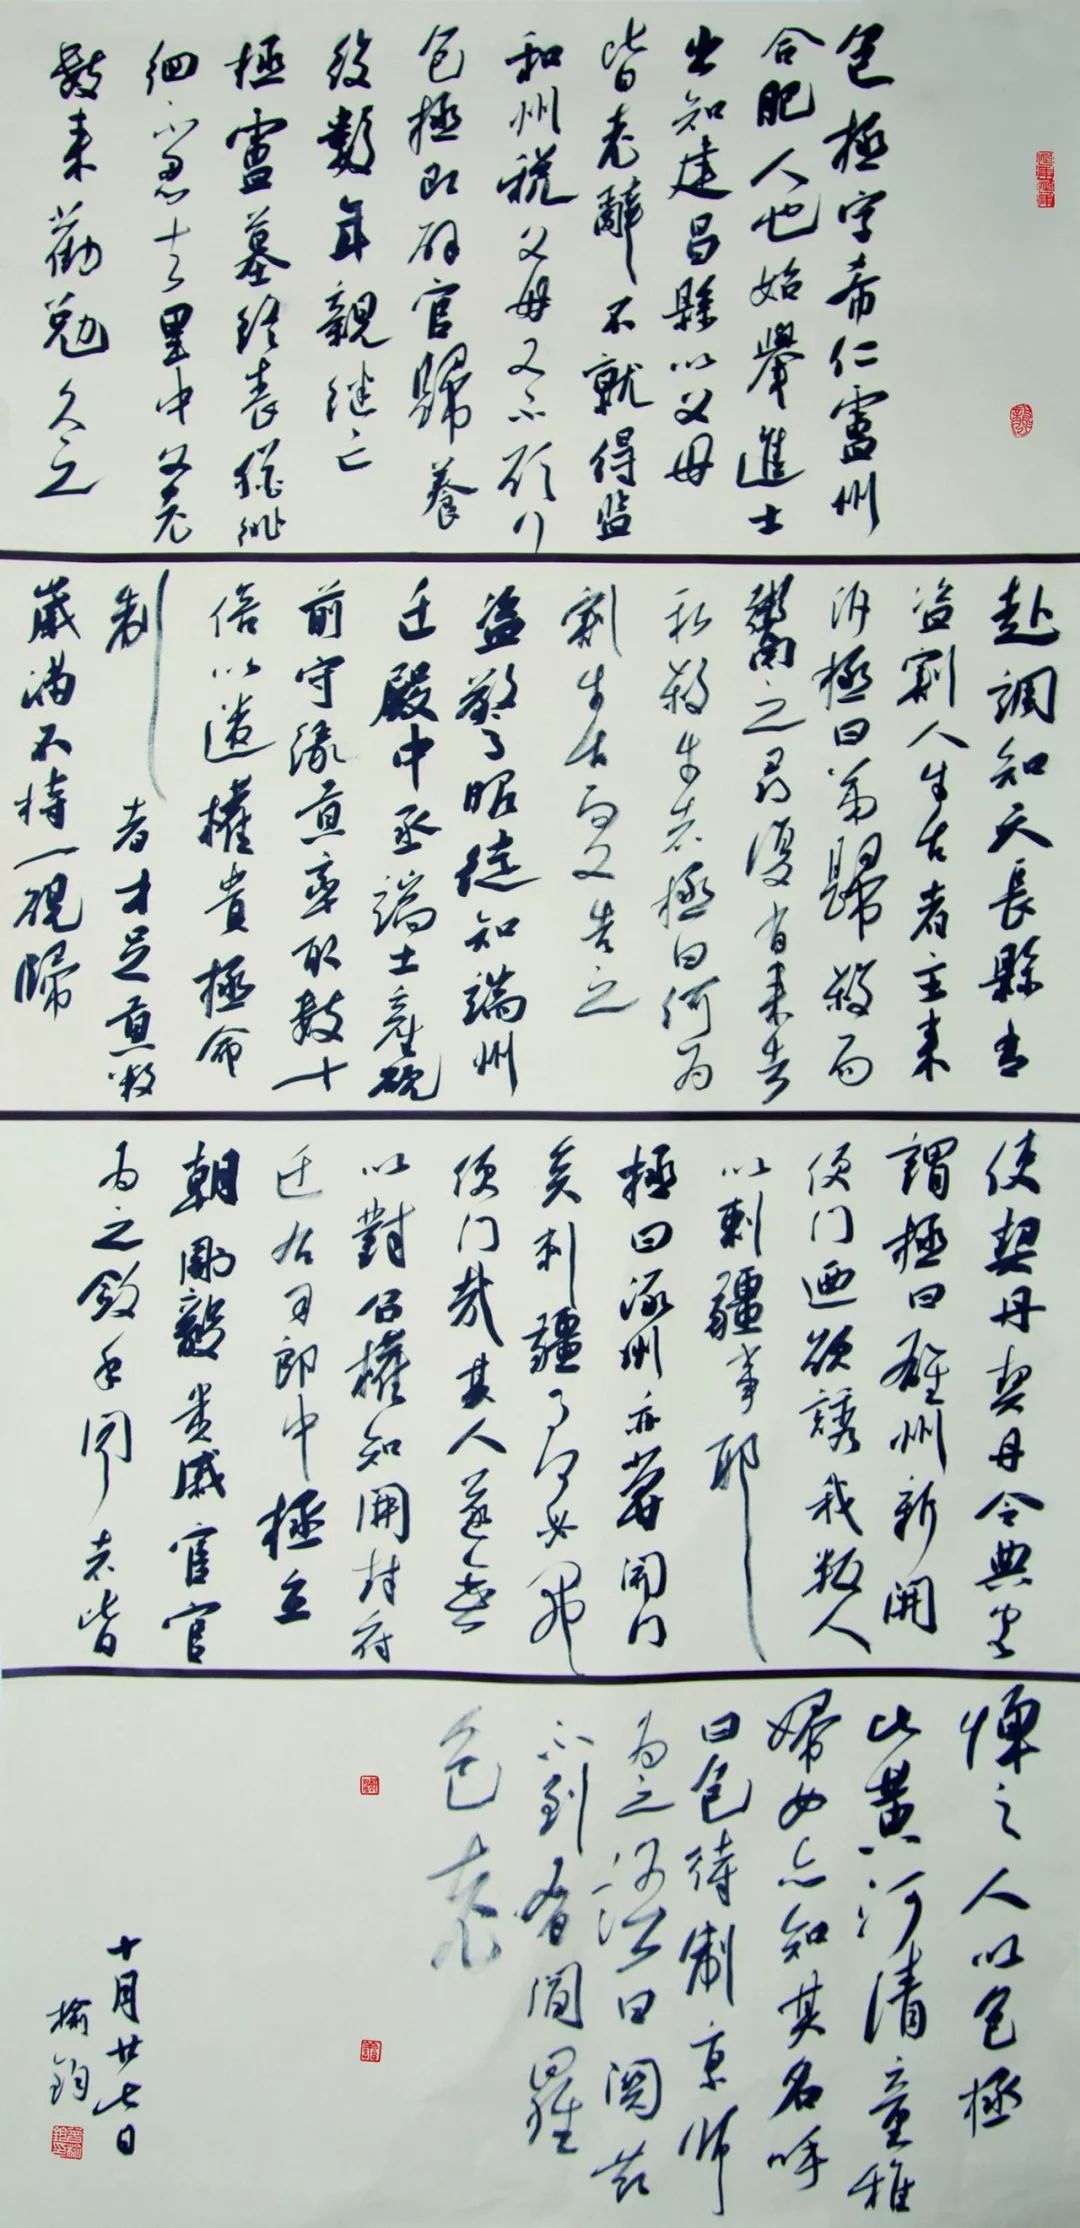 包極字希仁盧州
合肥人也始舉進士
出知建昌縣以父母
皆老辭不就得监
和州税父母又不欲行
包極即解官歸養
後數年親继亡
極盧墓終喪猶徘
徊不忍去里中父老
數来勸勉久之
赴調知天長縣有
盗割人牛舌者主来
訴極曰第歸殺而
鬻之尋復有来告
私殺牛者極曰何为
割牛舌而又告之
盗驚服徙知端州
迁殿中丞端土産硯
前守緣貢率取數十
倍以遺權貴極命
制者才足貢數
歲滿不持一硯歸
使契丹契丹令典客
謂極曰雄州新開
便门廼欲誘我叛人
以刺疆事耶
極曰涿州亦嘗開门
矣刺疆事何必開
便门哉其人遂無
以對召權知開封府
迁右司郎中極立
朝剛毅貴戚宦官
为之斂手聞者皆
憚之人以包極
比黃河清童稚
婦女亦知其名呼
曰包待制京師
为之語曰関節
不到有閻羅
包老
十月廿七日
榆鈞